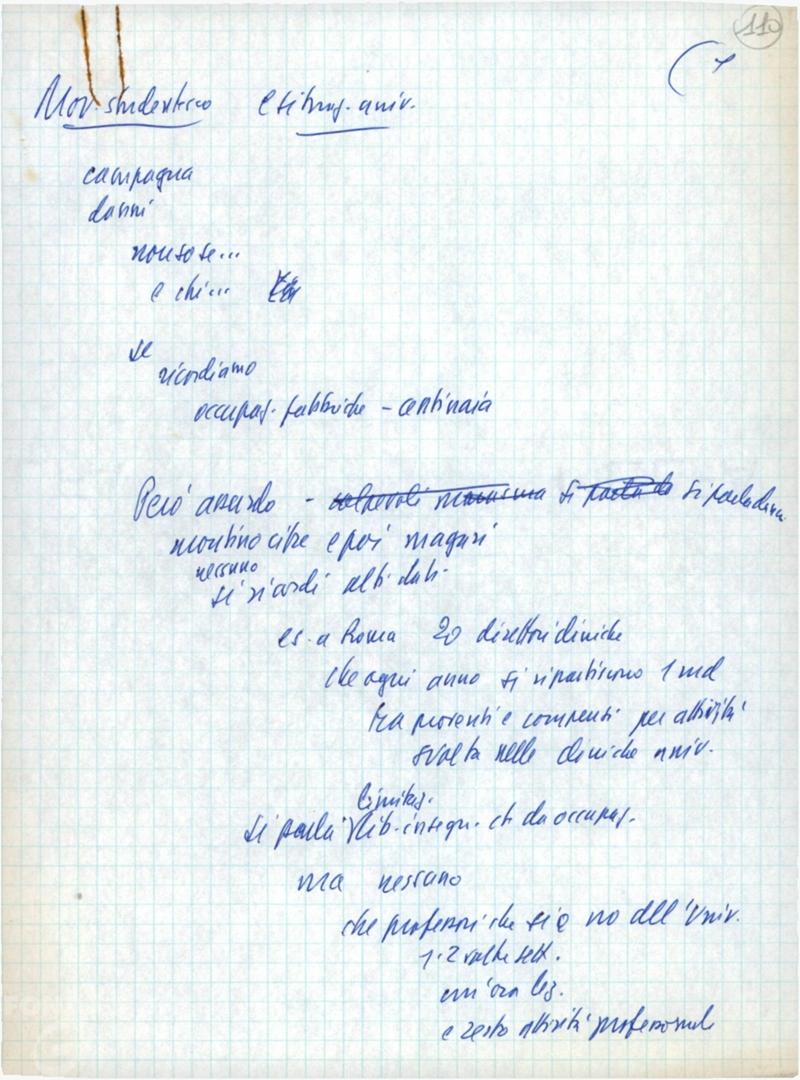 110
(1
Mov. studentesco e situaz. univ.
campagna
danni
non so se...
e chi...
se
ricordiamo
occupaz. fabbriche - centinaia
Però assurdo - si parla di si parla danni
montino cifre e poi magari
nessuno
si ricordi altri dati
es. a Roma 20 direttori cliniche
che ogni anno si ripartiscono 1 md
tra proventi e compensi per attività
svolta nelle cliniche univ.
limitaz.
si parla lib. insegn. ct da occupaz.
ma nessuno
che professori che si e no all'Univ.
1-2 volte sett.
un'ora lez.
e resto attività professional